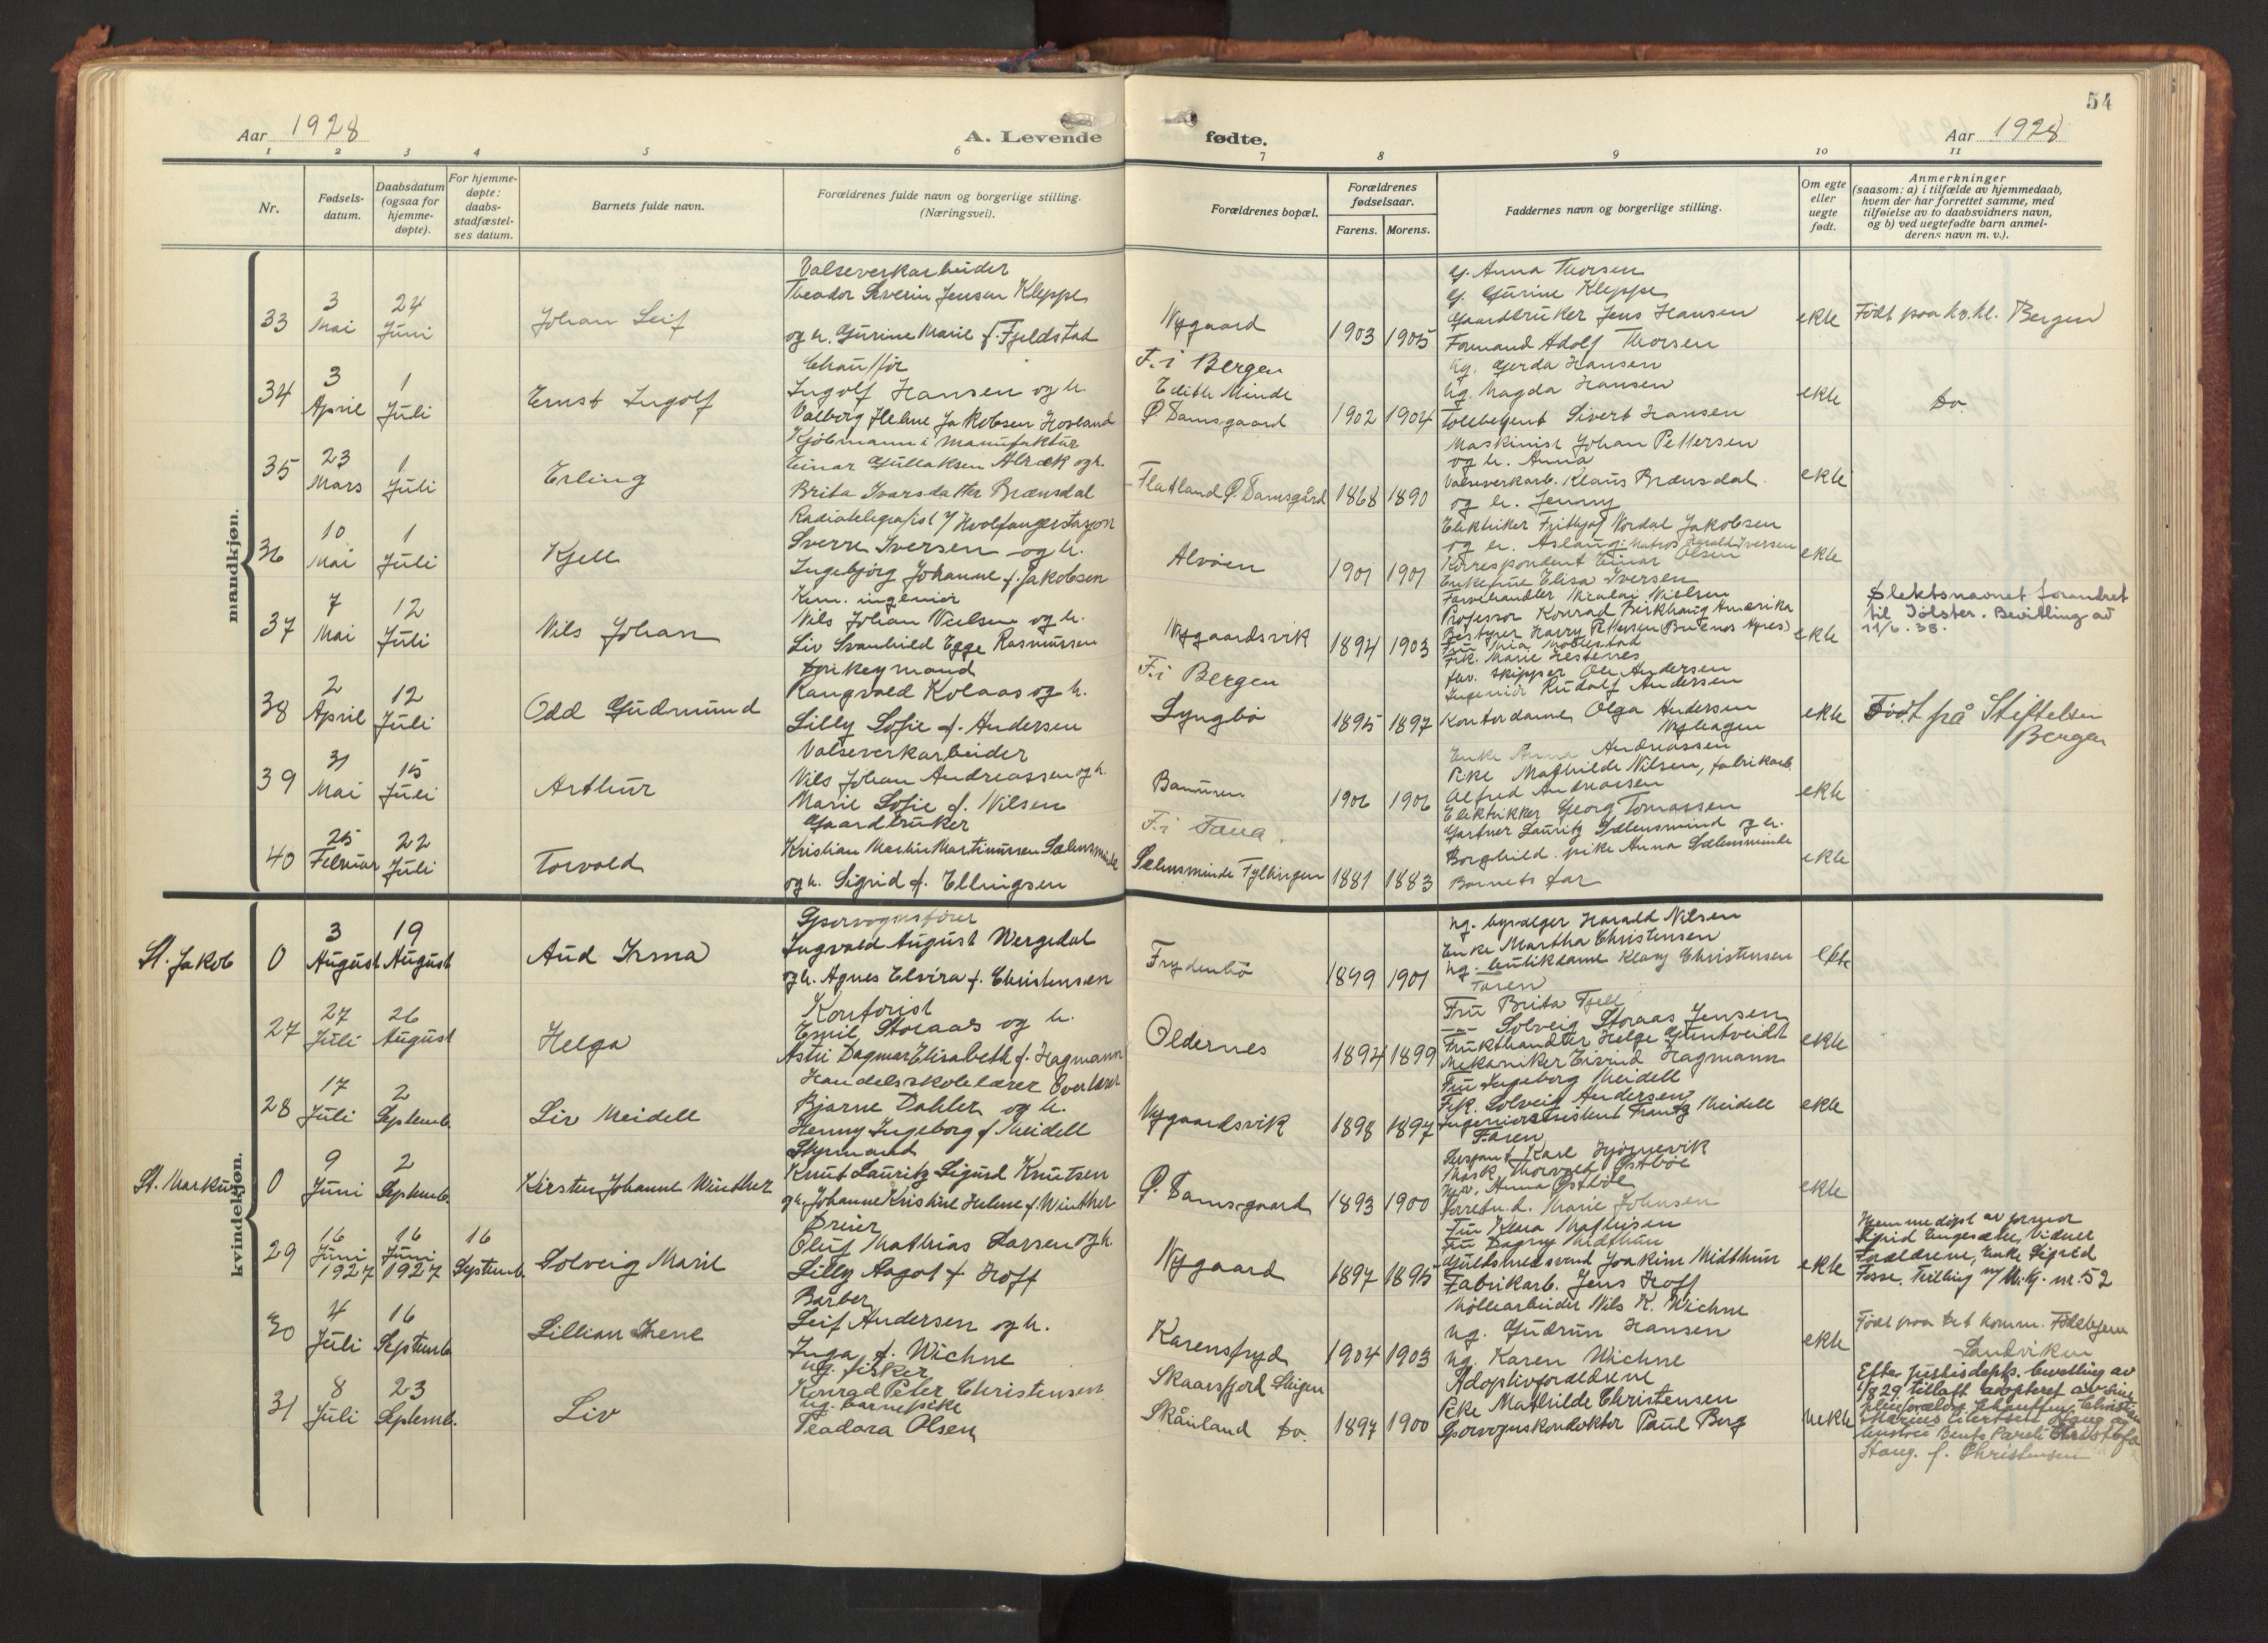 54
Aar 1928
A. Levende fødte.
Aar 1928
1 2 3 4 5 6 7 8 9 10 11
Nr.
Fødsels-
datum.
Daabsdatum
(ogsaa for
hjemme-
døpte).
For hjemme-
døpte:
daabs-
stadfæstel-
ses datum.
Barnets fulde navn.
Forældrenes fulde navn og borgerlige stilling.
(Næringsvei).
Forældrenes bopæl.
Forældrenes
fødselsaar.
Farens. Morens.
Faddernes navn og borgerlige stilling.
Om egte
eller
uegte
født.
Anmerkninger
(saasom: a) i tilfælde av hjemmedaab,
hvem der har forrettet samme, med
tilføielse av to daabsvidners navn,
og b) ved uegtefødte barn anmel-
derens navn m. v.).
mandkjøn.
33
3
Mai
24
Juni
Johan Leif
Valseverkarbeider
Theodor Severin Jensen Kleppe
og h. Gurine Marie f. Fjeldstad
Nygaard
1903 1905
G. Anna Thorsen
G. Gurine Kleppe
Gaardbruker Jens Hansen
Formand Adolf Thorsen
ekte
Født paa kv. kl. Bergen
34
3
April
1
Juli
Ernst Ingolf
Chauffør
Ingolf Hansen og h.
Valborg Helene Jakobsen Hovland
F. i Bergen
Edith Minde
Ø. Damsgaard
1902 1904
Ug. Gerda Hansen
Ug. Magda Hansen
Tollbetjent Sivert Hansen
ekte
do.
35
23
Mars
1
Juli
Erling
Kjøbmann i manufaktur
Einar Gullaksen Alræk og h.
Brita Ivarsdatter Brænsdal
Flatland Ø. Damsgård
1868 1890
Maskinist Johan Pettersen
og h. Anna
Valseverkarb. Klaus Brænsdal
og h. Jenny
ekte
36
10
Mai
1
Juli
Kjell
Sverre Iversen og h.
Ingebjørg Johanne f. Jakobsen
Alvøen
1901 1901
Elektriker Fritjof Nordal Jakobsen
og h. Aslaug. Matros Harald Iversen
Korrespondent Einar Olsen
Enkefrue Elisa Iversen
ekte
37
7
Mai
12
Juli
Nils Johan
Kem. ingeniør
Nils Johan Nielsen og h.
Liv Svanhild Egge Rasmussen
Nygaardsvik
1894 1903
Farvehandler Nicolai Nielsen
Professor Konrad Birkhaug Amerika
Bestyrer Harry Pettersen (Buenos Ayres)
Frk. Marie Hestenes
ekte
Slektsnavnet forandret
til Jølster. Bevilling av
11/6. 38.
38
2
April
12
Juli
Odd Gudmund
Donkeymand
Rangvald Kolaas og h.
Lilly Sofie f. Andersen
F. i Bergen
Lyngbø
1895 1897
fhv. skipper Ole Andersen
Ingeniør Rudolf Andersen
Kontordame Olga Andersen
Nyhagen
ekte
Født på Stiftelsen
Bergen
39
31
Mai
15
Juli
Arthur
Valseverkarbeider
Nils Johan Andreassen og h.
Marie Sofie f. Nilsen
1906 1906
Enke Anna Andreassen
Pike Mathilde Nilsen, fabrikarb.
Alfred Andreassen
Elektrikker Georg Tomassen
ekte
40
25
Februar
22
Juli
Torvald
Gaardbruker
Kristian Martin Martinussen Sælensminde
og h. Sigrid f. Ellingsen
F. i Fana.
Sælensminde Fyllingen
1881 1883
Gartner Lauritz Sælensmind og h.
Borghild. pike Anna Sælensminde
Barnets far
ekte
kvindekjøn.
St. Jakob
0
3
August
19
August
Aud Irma
Sporvognsfører
Ingvald August Wergedal
og h. Agnes Elvira f. Christensen
Frydenbø
1899 1901
Ug. byselger Harald Nilsen
Enke Martha Christensen
Ug. butikdame Klary Christensen
Faren
ekte
27
27
Juli
26
August
Helga
Kontorist
Emil Storaas og h.
Astri Dagmar Elisabeth f. Hagmann
Oldernes
1894 1899
Fru Brita Fjell
Solveig Storaas Jensen
Frukthandler Helge Gjentveidt
Mekaniker Eivind Hagmann
ekte
28
17
Juli
2
Septemb.
Liv Meidell
Handelsskolelærer Overlærer
Bjarne Dahler og h.
Henny Ingeborg f. Meidell
Nygaardsvik
1898 1897
Fru Ingeborg Meidell
Frk. Solveig Andersen
Ingeniørassistent Frantz Meidell
Faren
ekte
St. Markus
0
9
Juni
2
Septemb.
Kirsten Johanne Winther
Styrmand
Knut Lauritz Sigurd Knutsen
og h. Johanne Kristine Helene f. Winther
Ø. Damsgaard
1893 1900
Karl Hjønnevik
Mask. Thorvald Østbøe
Anna Østbøe
Marie Johnsen
ekte
29
16
Juni
1927
16
Juni
1927
16
Septemb.
Solveig Marie
Dreier
Oluf Mathias Larsen og h.
Lilly Aagot f. Hoff
Nygaard
1897 1895
Fru Klara Mathisen
Fru Dagny Midthun
Guldsmedsvend Joakim Midthun
Fabrikarb. Jens Hoff
ekte
Hjemmedøpt av jormor
Sigrid Engesæter, Vidner
Forældrene, Enke Sigrid
Fosse, Tvilling m/ M.kj. nr. 52
30
4
Juli
16
Septemb.
Lillian Irene
Barber
Leif Andersen og h.
Inga f. Wichne
Karensfryd
1904 1903
Møllearbeider Nils K. Wichne
ug. Gudrun Hansen
ug. Karen Wichne
ekte
Født paa det komm. Fødehjem
Sandviken
31
8
Juli
23
Septemb.
Liv
ug. fisker
Konrad Peter Christensen
ug. barnepike
Teodora Olsen
Skaarsfjord Steigen
Skånland do.
1897 1900
Adoptivforældrene
Pike Mathilde Christensen
Sporvognskonduktør Paul Berg
uekte
Efter Justisdepts. bevilling av
1/8 29 tillatt adopteret av sine
pleieforældre Chauffør Christian
Marius Eilertsen Haug og
hustru Bents Pareli
Haug. f. Christensen